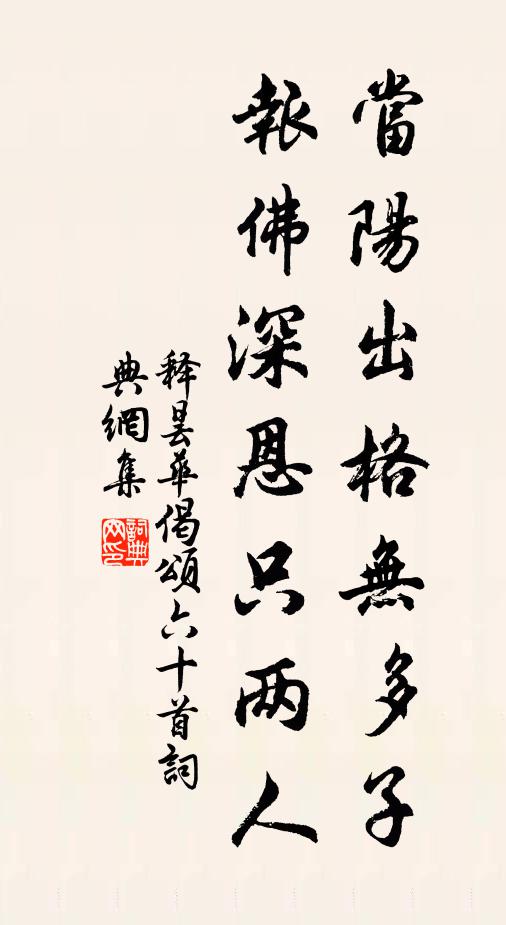 當陽出格無多子
報佛深恩只两人
释曇華偈頌六十首詞
典網集
詞典網印